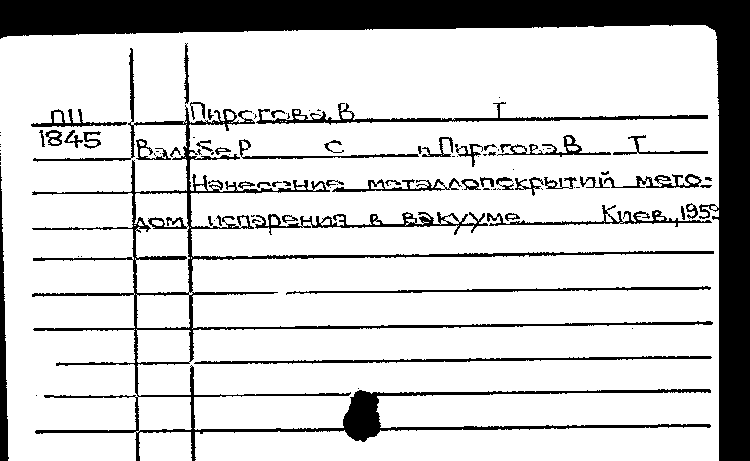 П11 Пирогова, В Т
1845 Вальбе, Р С и Пирогова, В Т
Нанесение металлопокрытий мето-
дом испарения в вакууме. Киев, 1959